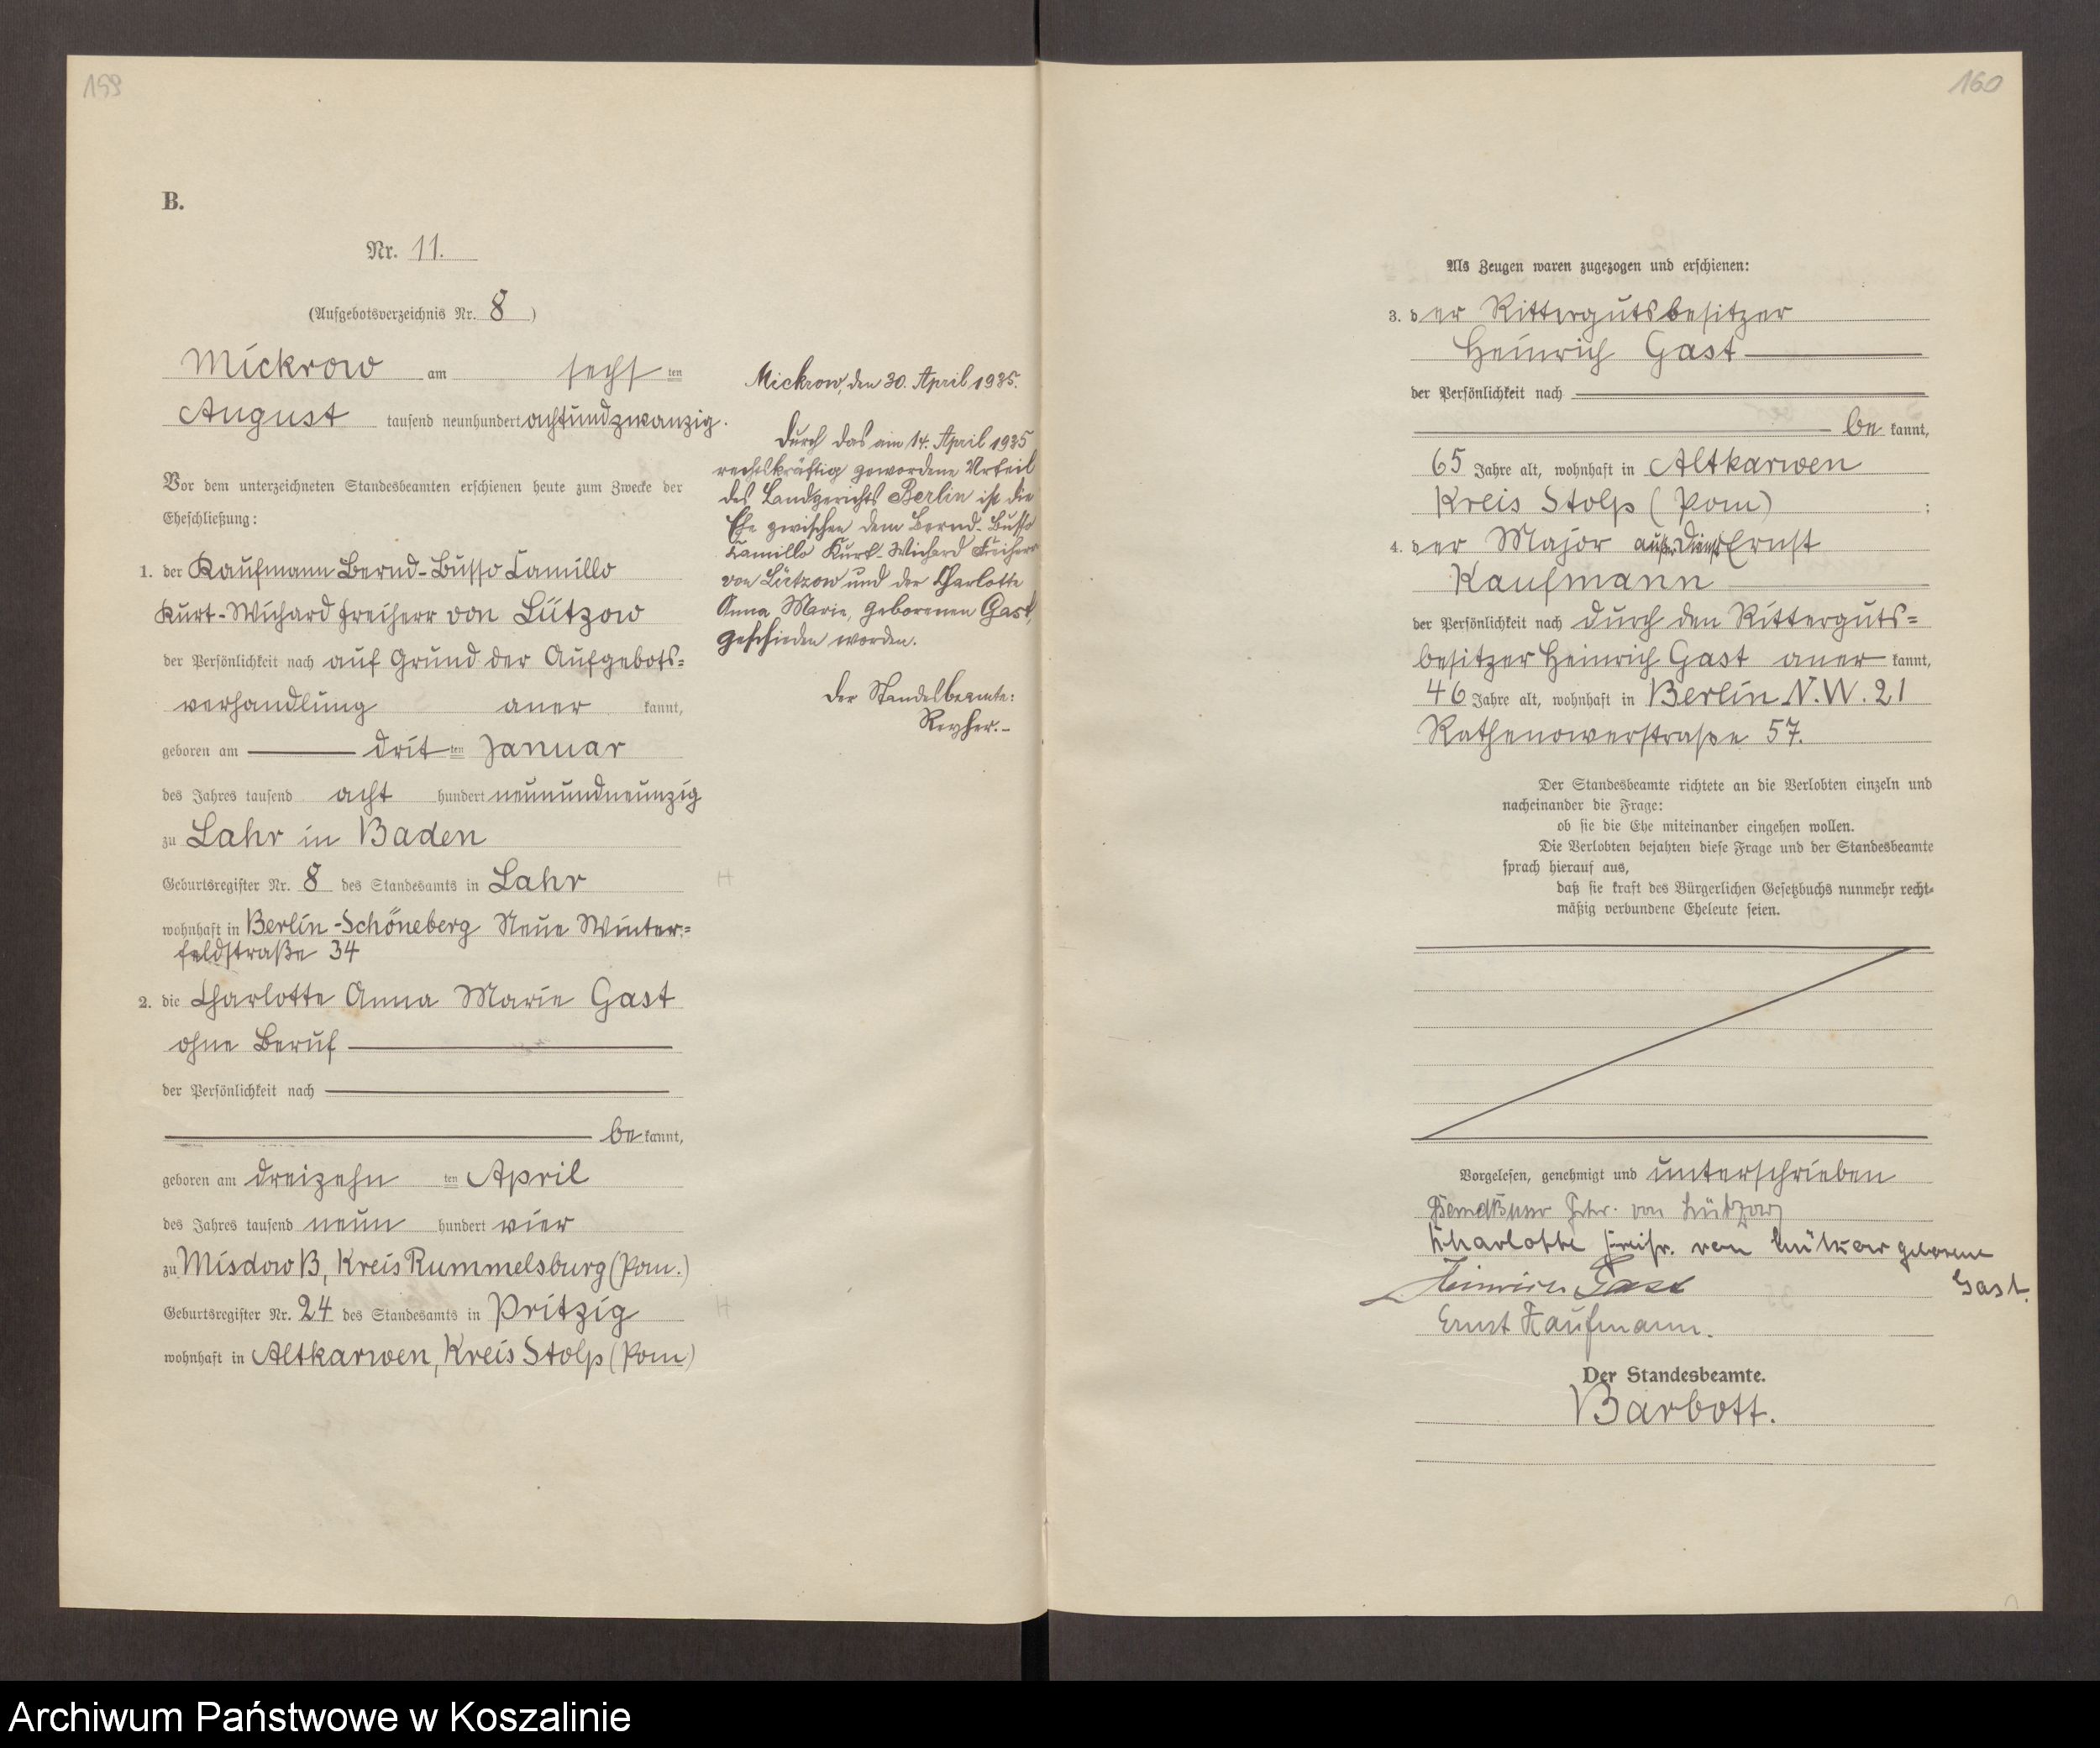 159
B.
Nr. 11.
(Aufgebotsverzeichnis Nr. 8)
Mickrow am sechsten
August tausend neunhundert achtundzwanzig.
Vor dem unterzeichneten Standesbeamten erschienen heute zum Zwecke der
Eheschließung:
1. der Kaufmann Bernd-Busso Camillo
Kurt-Wichard Freiherr von Lützow
der Persönlichkeit nach auf Grund der Aufgebots=
verhandlung aner kannt,
geboren am dritten Januar
des Jahres tausend acht hundert neunundneunzig
zu Lahr in Baden
Geburtsregister Nr. 8 des Standesamts in Lahr
wohnhaft in Berlin-Schöneberg Neue Winter=
feldstraße 34
2. die Charlotte Anna Marie Gast
ohne Beruf
der Persönlichkeit nach
be kannt,
geboren am dreizehnten April
des Jahres tausend neun hundert vier
zu Misdow B, Kreis Rummelsburg (Pom.)
Geburtsregister Nr. 24 des Standesamts in Pritzig
wohnhaft in Altkarwen, Kreis Stolp (Pom)
Mickrow, den 30. April 1935.
Durch das am 14. April 1935
rechtskräftig gewordene Urteil
des Landgerichts Berlin ist die
Ehe zwischen dem Bernd-Busso
Camillo Kurt-Wichard Freiherr
von Lützow und der Charlotte
Anna Marie, geborenen Gast,
geschieden worden.
Der Standesbeamte:
Reyher.-
H
H
160
Als Zeugen waren zugezogen und erschienen:
3. der Rittergutsbesitzer
Heinrich Gast
der Persönlichkeit nach
be kannt,
65 Jahre alt, wohnhaft in Altkarwen
Kreis Stolp (Pom) ;
4. der Major außer Dienst Ernst
Kaufmann
der Persönlichkeit nach durch den Ritterguts=
besitzer Heinrich Gast aner kannt,
46 Jahre alt, wohnhaft in Berlin N.W. 21
Rathenowerstrasse 57.
Der Standesbeamte richtete an die Verlobten einzeln und
nacheinander die Frage:
ob sie die Ehe miteinander eingehen wollen.
Die Verlobten bejahten diese Frage und der Standesbeamte
sprach hierauf aus,
daß sie kraft des Bürgerlichen Gesetzbuchs nunmehr recht=
mäßig verbundene Eheleute seien.
Vorgelesen, genehmigt und unterschrieben
Bernd Busso Frhr. von Lützow
Charlotte Freifr. von Lützow geborene
Gast.
Heinrich Gast
Ernst Kaufmann.
Der Standesbeamte.
Barbott.
Archiwum Państwowe w Koszalinie